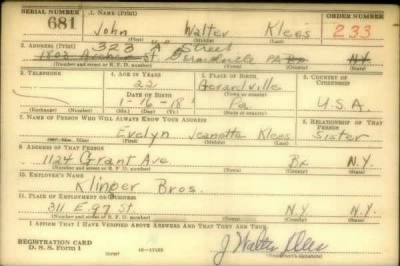 SERIAL NUMBER 1. NAME (Print) ORDER NUMBER
681 John Walter Klees 233
(First) (Middle) (Last)
2. ADDRESS (Print) 323 "A" Street
1803 St. Girardville PA Bx N.Y.
(Number and street or R. F. D. number) (Town) (County) (State)
3. TELEPHONE 4. AGE IN YEARS 5. PLACE OF BIRTH 6. COUNTRY OF CITIZENSHIP
22 Gerardville
DATE OF BIRTH (Town or county)
1-16-18 Pa U.S.A.
(Exchange) (Number) (Mo.) (Day) (Yr.) (State or country)
7. NAME OF PERSON WHO WILL ALWAYS KNOW YOUR ADDRESS 8. RELATIONSHIP OF THAT PERSON
Evelyn Jeanette Klees Sister
(Mr., Mrs., Miss) (First) (Middle) (Last)
9. ADDRESS OF THAT PERSON
1124 Grant Ave. Bx N.Y.
(Number and street or R. F. D. number) (Town) (County) (State)
10. EMPLOYER'S NAME
Klinger Bros.
11. PLACE OF EMPLOYMENT OR BUSINESS
311 E. 97 St. N.Y. N.Y.
(Number and street or R. F. D. number) (Town) (County) (State)
I AFFIRM THAT I HAVE VERIFIED ABOVE ANSWERS AND THAT THEY ARE TRUE.
REGISTRATION CARD
D. S. S. Form 1 J Walter Klees
(Registrant's signature)